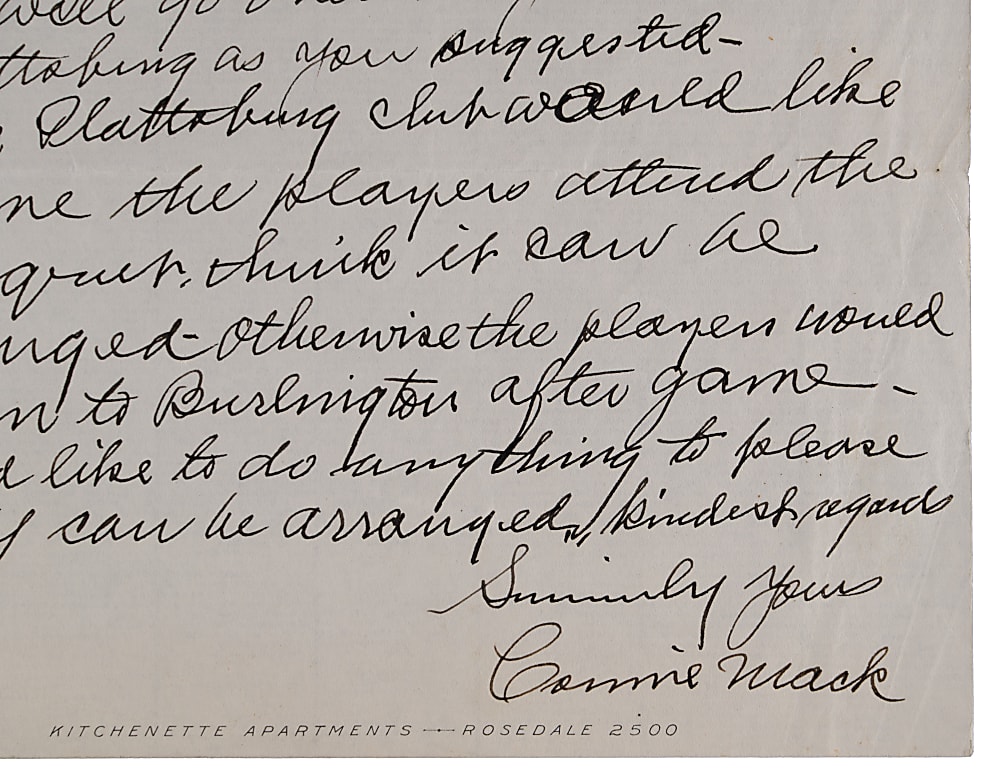 will go
ttsburg as you suggested-
Plattsburg club would like
me the players attend the
quet, think it can be
nged - otherwise the players would
n to Burlington after game -
d like to do anything to please
y can be arranged, kindest regards
Sincerely Yours
Connie Mack
KITCHENETTE APARTMENTS — ROSEDALE 2500